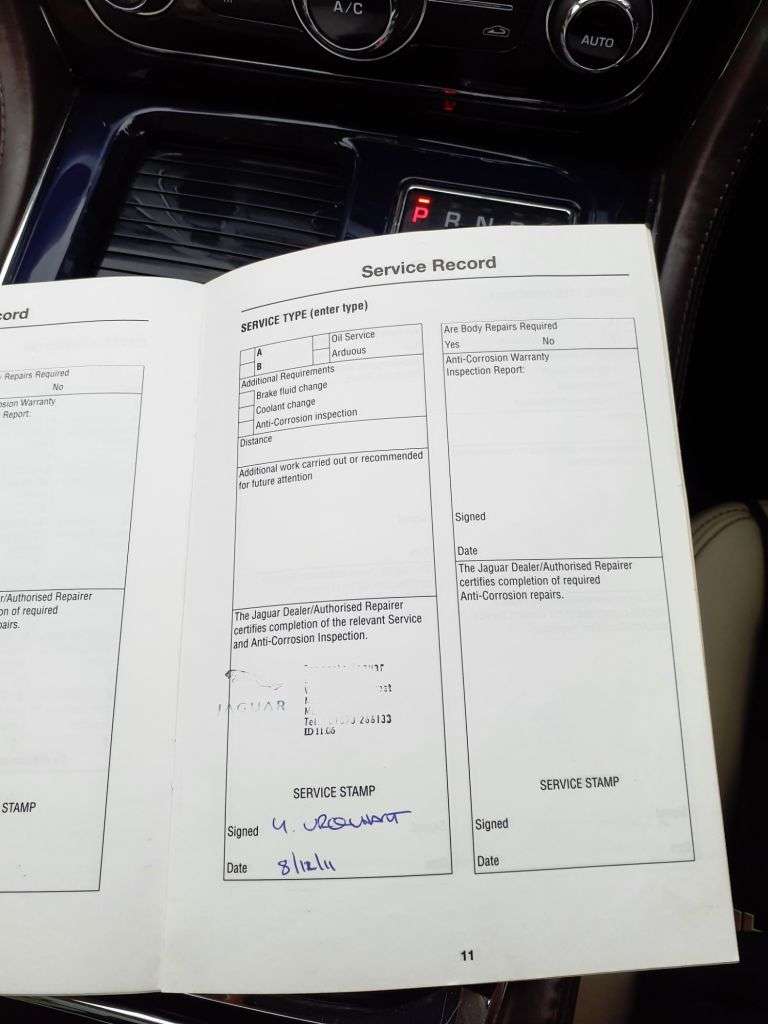 A/C
AUTO
P R N
cord
Repairs Required
No
osion Warranty
Report:
r/Authorised Repairer
on of required
pairs.
STAMP
Service Record
SERVICE TYPE (enter type)
A
B
Oil Service
Arduous
Additional Requirements
Brake fluid change
Coolant change
Anti-Corrosion inspection
Distance
Additional work carried out or recommended
for future attention
The Jaguar Dealer/Authorised Repairer
certifies completion of the relevant Service
and Anti-Corrosion Inspection.
JAGUAR
Tel. 266133
ID 11.06
SERVICE STAMP
Signed U. URQUHART
Date 8/12/11
Are Body Repairs Required
Yes No
Anti-Corrosion Warranty
Inspection Report:
Signed
Date
The Jaguar Dealer/Authorised Repairer
certifies completion of required
Anti-Corrosion repairs.
SERVICE STAMP
Signed
Date
11